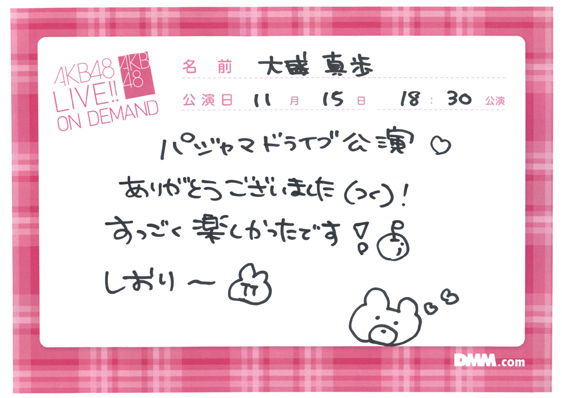 AKB48
LIVE!!
ON DEMAND
AKB
48
名前 大盛真歩
公演日 11月 15日 18:30公演
パジャマドライブ公演♡
ありがとうございました(つく)!
すっごく楽しかったです!
しおり〜
DMM.com